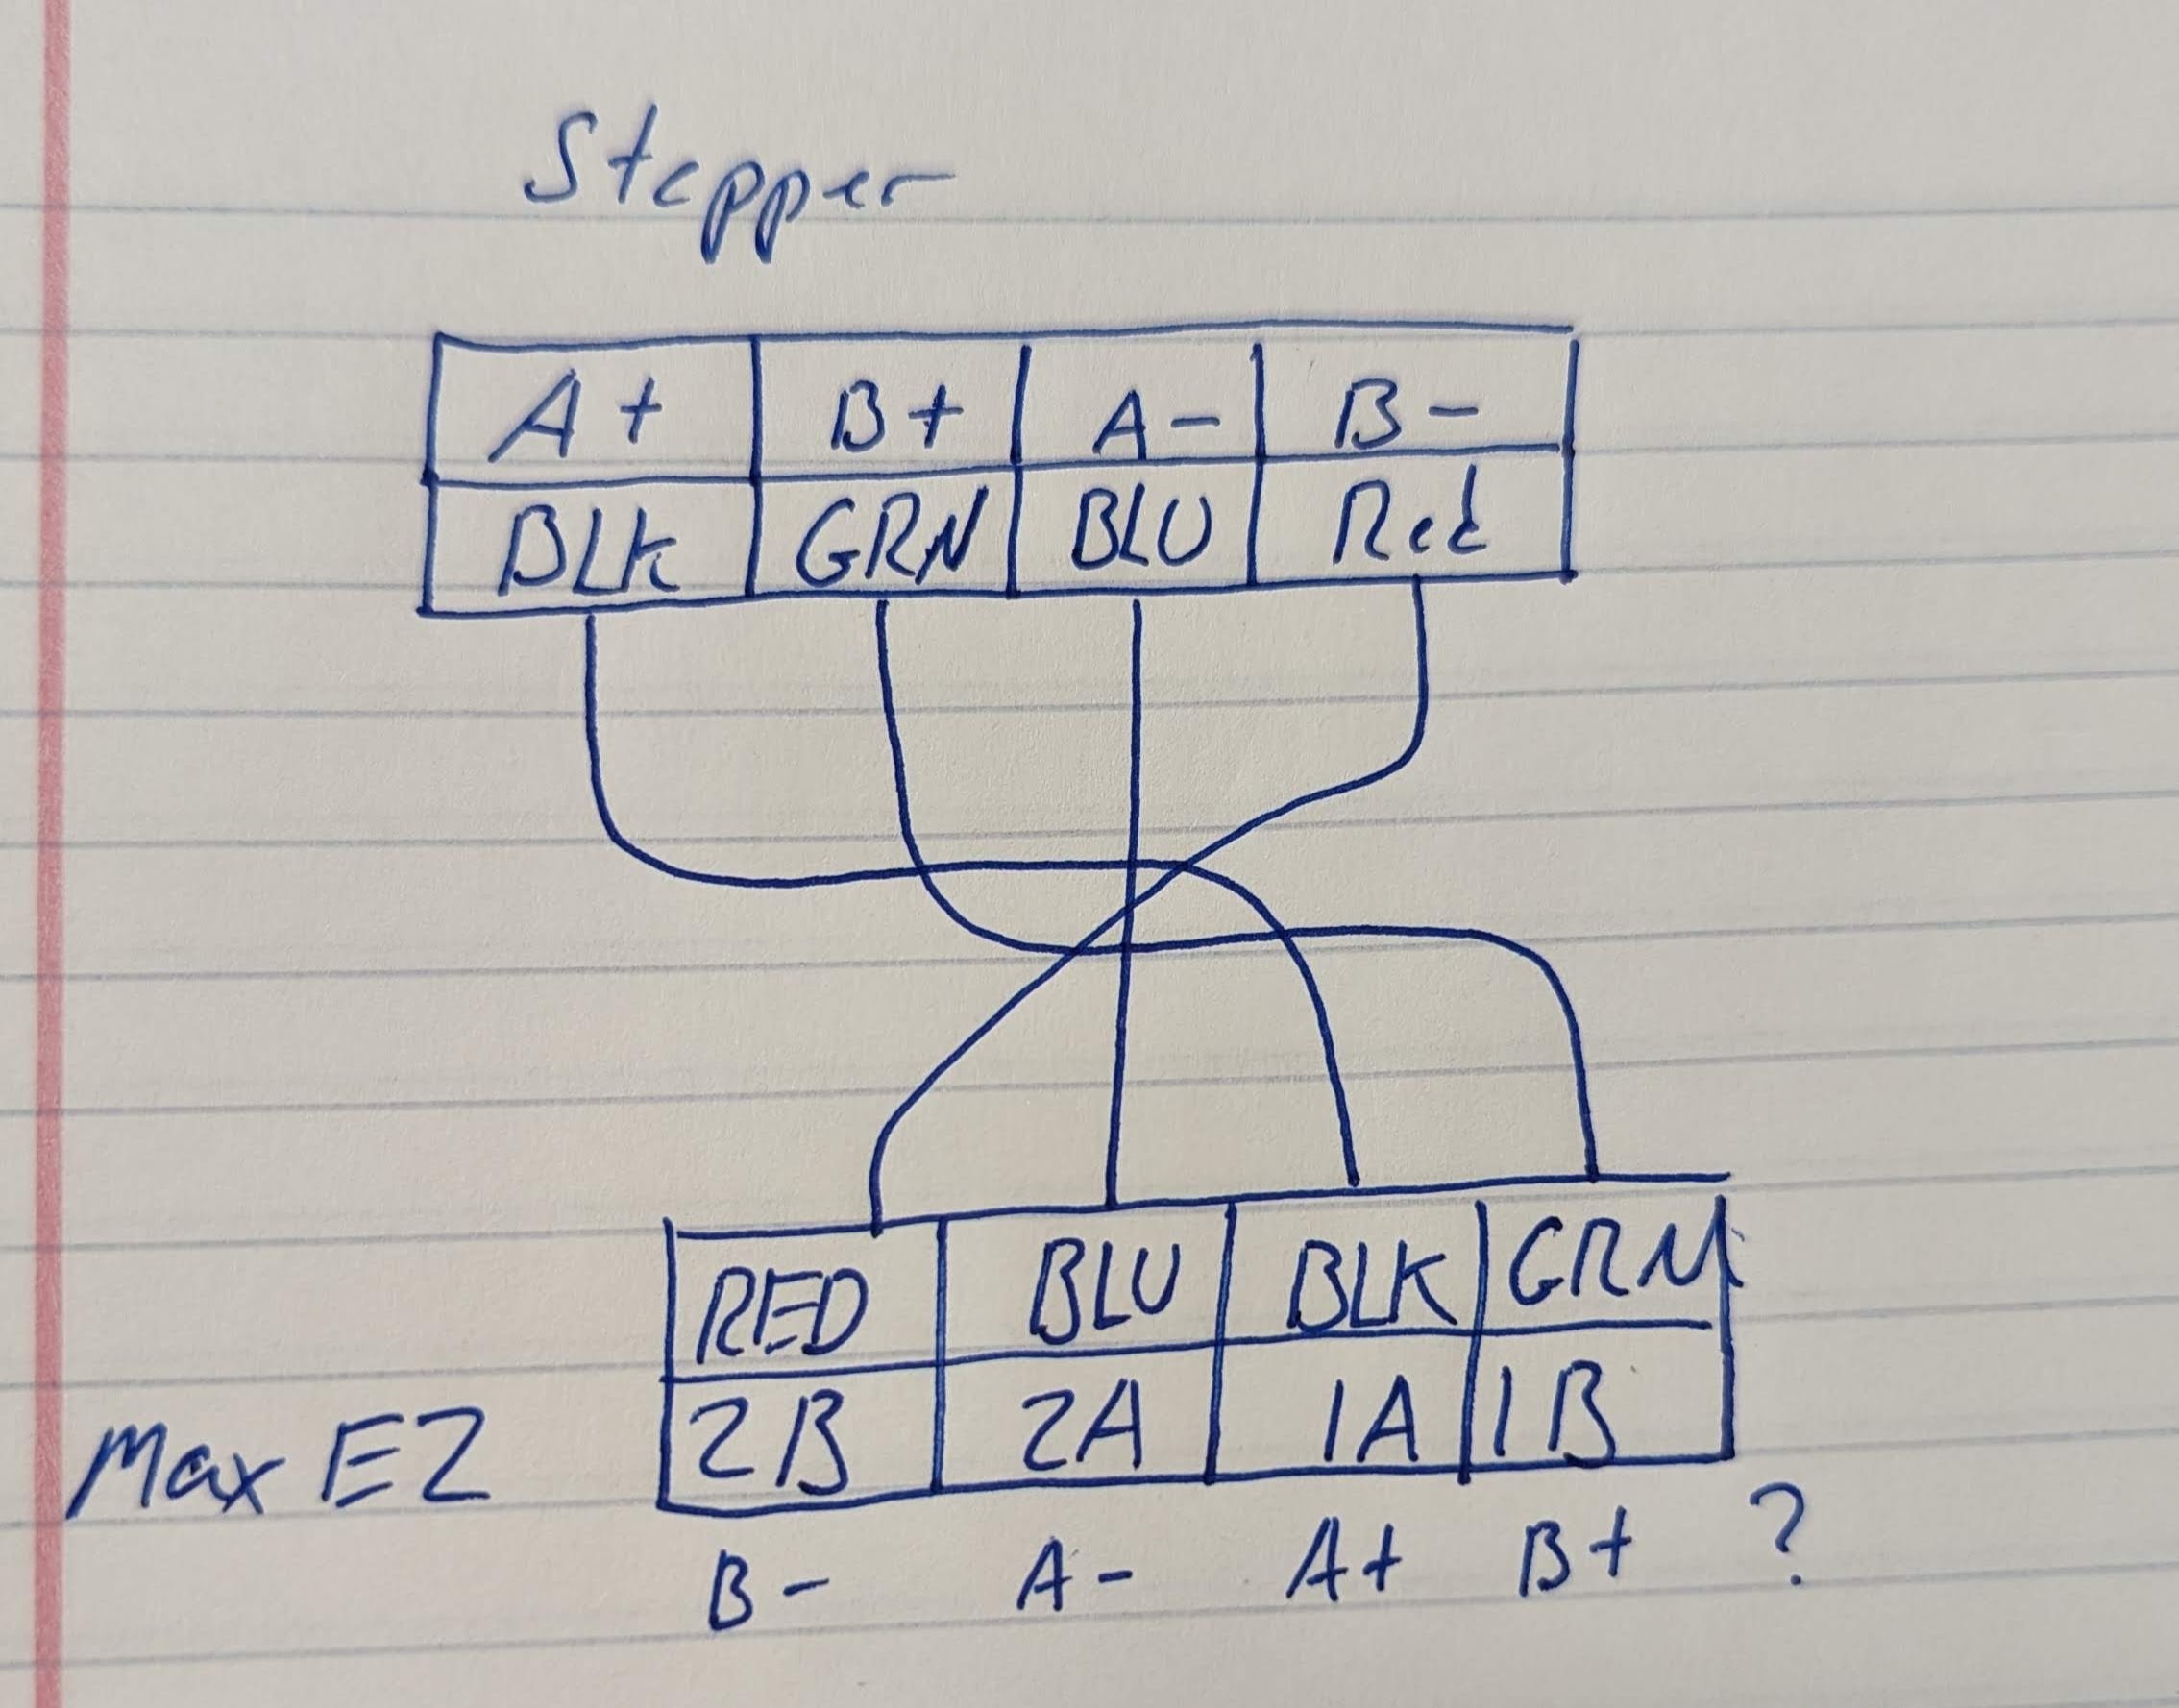 Stepper
A+ B+ A- B-
BLK GRN BLU Red
RED BLU BLK GRN
Max EZ 2B 2A 1A 1B
B- A- A+ B+ ?